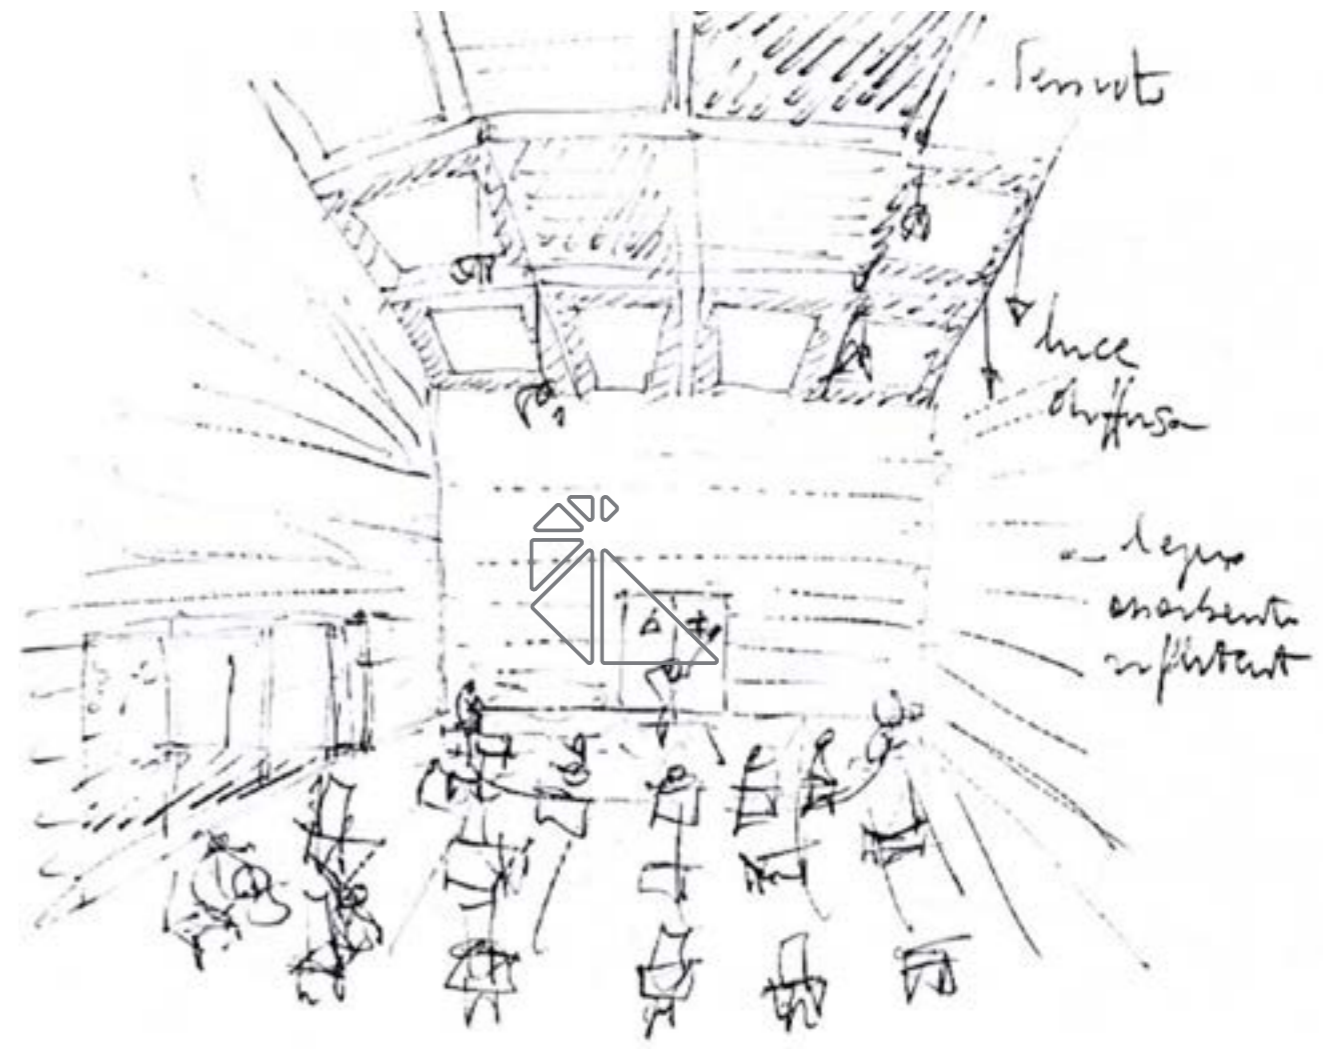 luce
diffusa
legno
assorbente
riflettente